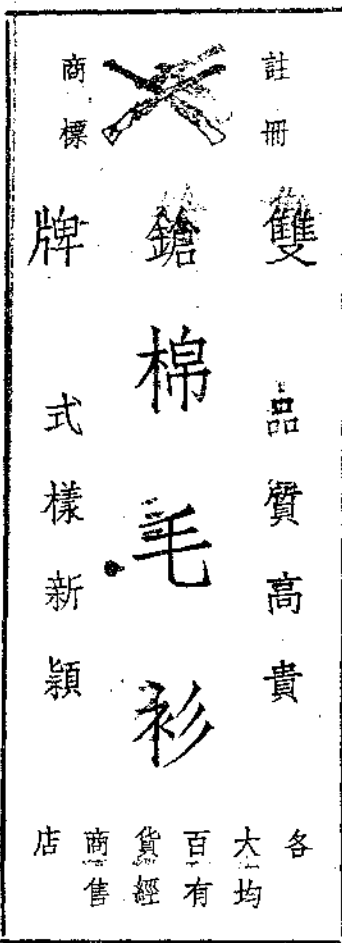 註冊
商標
雙鎗牌
棉毛衫
品質高貴
式樣新穎
各大百貨商店
均有經售